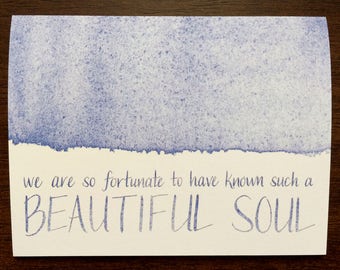 we are so fortunate to have known such a
BEAUTIFUL SOUL